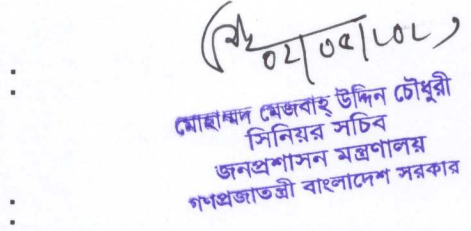 মোহাম্মদ মেজবাহ্ উদ্দিন চৌধুরী
সিনিয়র সচিব
জনপ্রশাসন মন্ত্রণালয়
গণপ্রজাতন্ত্রী বাংলাদেশ সরকার